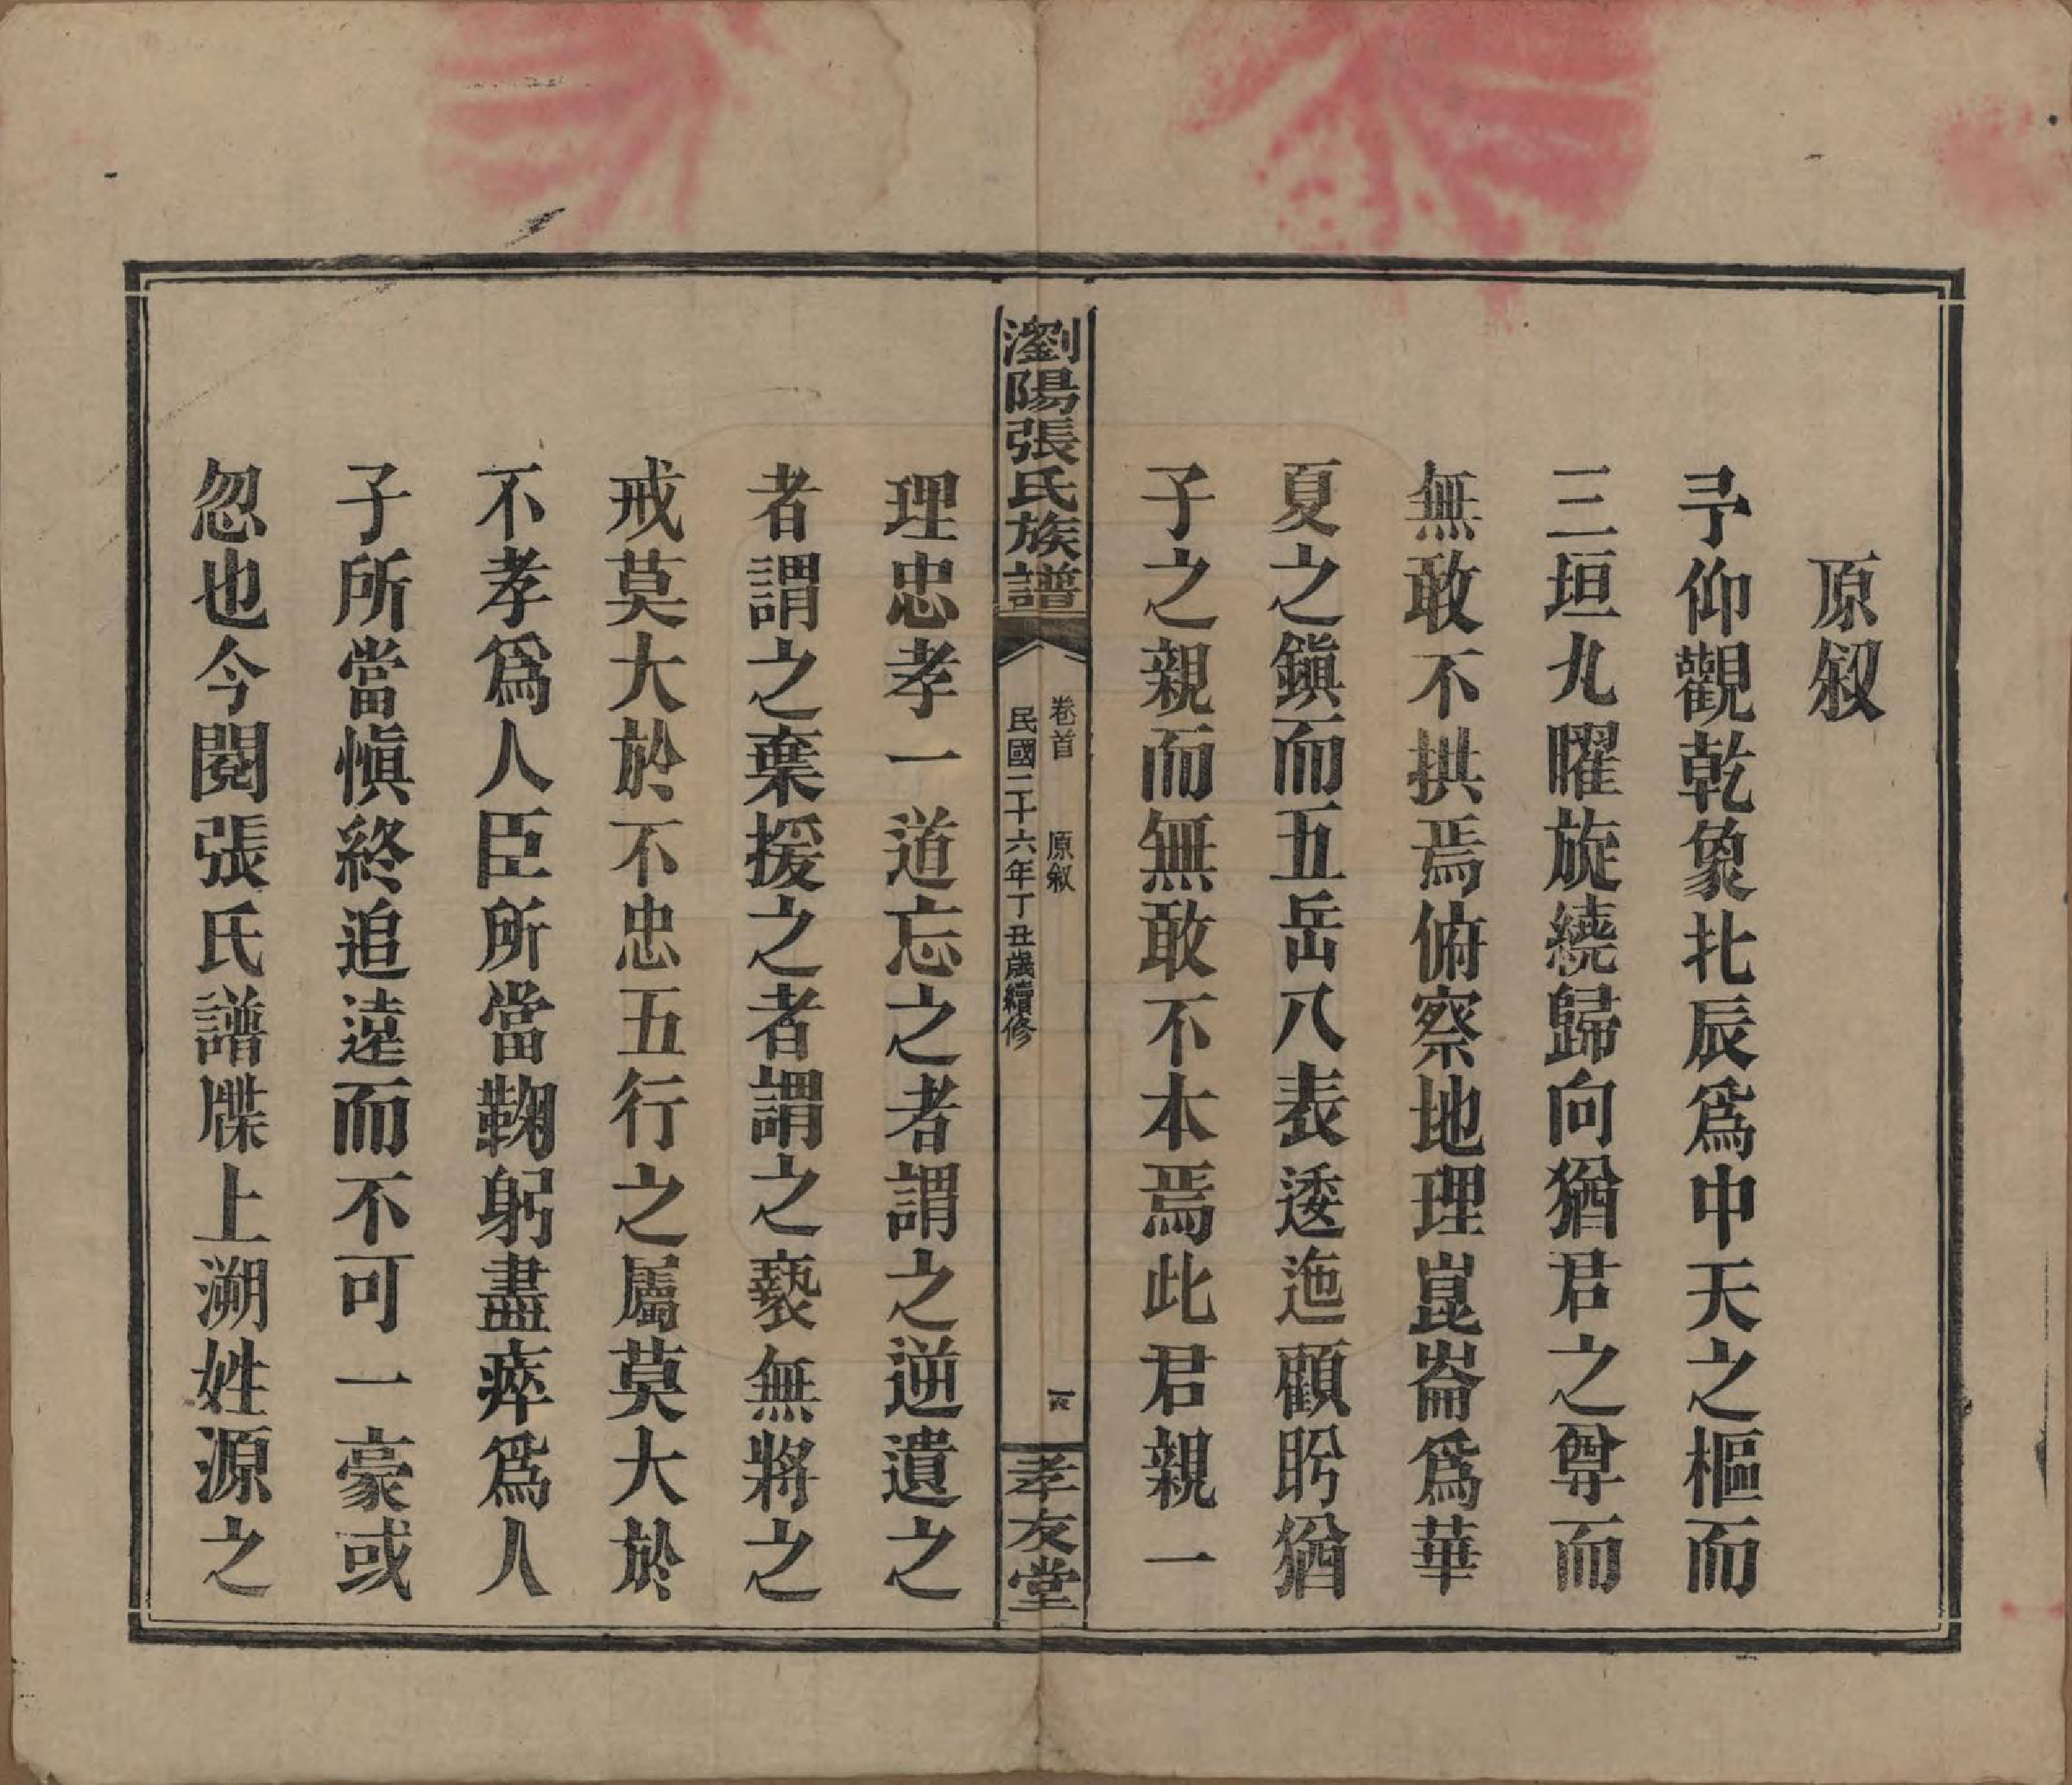 原叙
予仰觀乾象北辰爲中天之樞而
三垣九曜旋繞歸向猶君之尊而
無敢不拱焉俯察地理崑崙爲華
夏之鎭而五岳八表逶迤顧盻猶
子之親而無敢不本焉此君親一
瀏陽張氏族譜
卷首 原叙
民國二十六年丁丑歲續修
孝友堂
理忠孝一道忘之者謂之逆遺之
者謂之棄援之者謂之褻無將之
戒莫大於不忠五行之屬莫大於
不孝爲人臣所當鞠躬盡瘁爲人
子所當愼終追遠而不可一豪或
忽也今閱張氏譜牒上溯姓源之